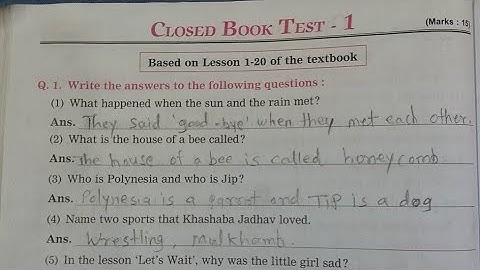 CLOSED BOOK TEST - 1
(Marks : 15)
Based on Lesson 1-20 of the textbook
Q. 1. Write the answers to the following questions :
(1) What happened when the sun and the rain met?
Ans. They said 'good-bye' when they met each other.
(2) What is the house of a bee called?
Ans. The house of a bee is called honeycomb
(3) Who is Polynesia and who is Jip?
Ans. Polynesia is a parrot and Jip is a dog
(4) Name two sports that Khashaba Jadhav loved.
Ans. Wrestling, Mulkhamb.
(5) In the lesson 'Let's Wait', why was the little girl sad?